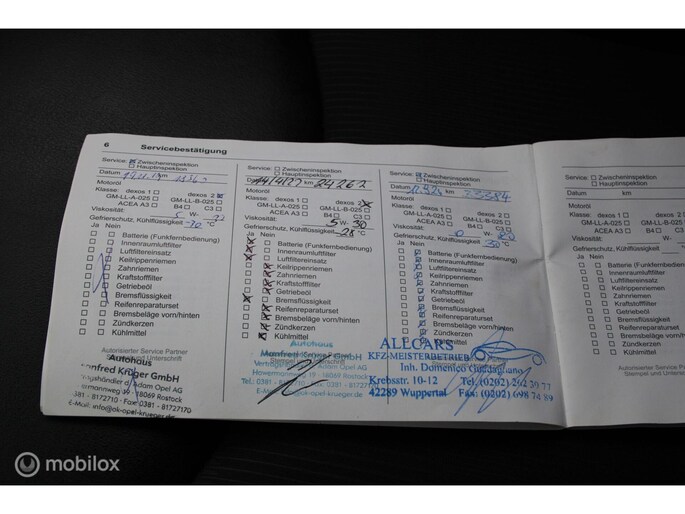 6 Servicebestätigung
Service: Zwischeninspektion
Hauptinspektion
Datum km
Motoröl
Klasse: dexos 1 dexos 2
GM-LL-A-025 GM-LL-B-025
ACEA A3 B4 C3
Viskosität: 5 W-
Gefrierschutz, Kühlflüssigkeit °C
Ja Nein
Batterie (Funkfernbedienung)
Innenraumluftfilter
Luftfiltereinsatz
Keilrippenriemen
Zahnriemen
Kraftstofffilter
Getriebeöl
Bremsflüssigkeit
Reifenreparaturset
Bremsbeläge vorn/hinten
Zündkerzen
Kühlmittel
Autorisierter Service Partner
Stempel und Unterschrift
Autohaus
Manfred Krüger GmbH
Adam Opel AG
18069 Rostock
0381 - 8172710 - Fax: 0381 - 81727170
E-Mail: info@ok-opel-krueger.de
Service: Zwischeninspektion
Hauptinspektion
Datum km 24262
Motoröl
Klasse: dexos 1 dexos 2
GM-LL-A-025 GM-LL-B-025
ACEA A3 B4 C3
Viskosität: 5 W-30
Gefrierschutz, Kühlflüssigkeit -28 °C
Ja Nein
Batterie (Funkfernbedienung)
Innenraumluftfilter
Luftfiltereinsatz
Keilrippenriemen
Zahnriemen
Kraftstofffilter
Getriebeöl
Bremsflüssigkeit
Reifenreparaturset
Bremsbeläge vorn/hinten
Zündkerzen
Kühlmittel
Autohaus
Manfred Krüger GmbH
Adam Opel AG
18069 Rostock
Tel.: 0381 - 8172710 - Fax: 0381 - 81727170
E-Mail: info@ok-opel-krueger.de
Service: Zwischeninspektion
Hauptinspektion
Datum km
Motoröl
Klasse: dexos 1 dexos 2
GM-LL-A-025 GM-LL-B-025
ACEA A3 B4 C3
Viskosität: 0 W-
Gefrierschutz, Kühlflüssigkeit 30 °C
Ja Nein
Batterie (Funkfernbedienung)
Innenraumluftfilter
Luftfiltereinsatz
Keilrippenriemen
Zahnriemen
Kraftstofffilter
Getriebeöl
Bremsflüssigkeit
Reifenreparaturset
Bremsbeläge vorn/hinten
Zündkerzen
Kühlmittel
ALLCARS
KFZ-MEISTERBETRIEB
Inh. Domenico Guadagnano
Krebsstr. 10-12 Tel: (0202)
42289 Wuppertal Fax: (0202) 698 74 89
Service: Zwischeninspektion
Hauptinspektion
Datum km
Motoröl
Klasse: dexos 1
GM-LL-A-025
ACEA A3
Viskosität:
Gefrierschutz, Kühlflüssigkeit
Ja Nein
Batterie (Funkfernbedienung)
Innenraumluftfilter
Luftfiltereinsatz
Keilrippenriemen
Zahnriemen
Kraftstofffilter
Getriebeöl
Bremsflüssigkeit
Reifenreparaturset
Bremsbeläge vorn/hinten
Zündkerzen
Kühlmittel
Autorisierter Service Partner
Stempel und Unterschrift
mobilox